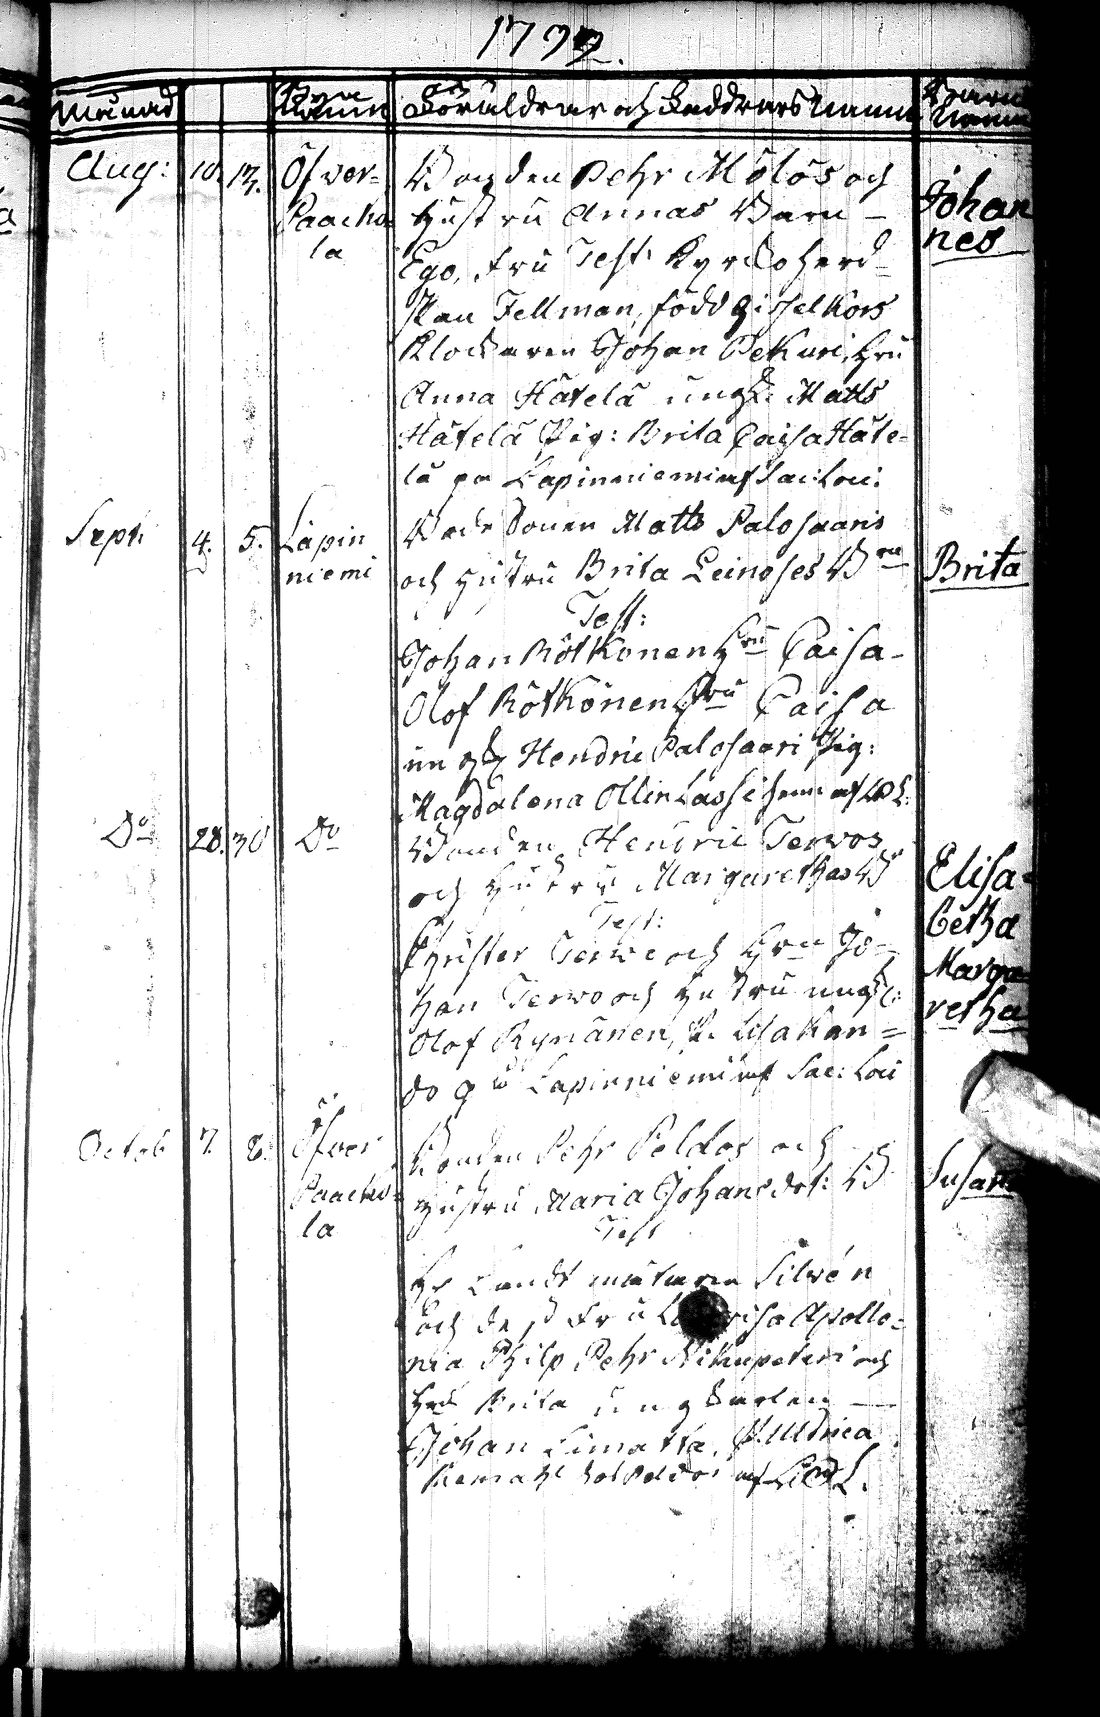 1792.
Månad
Byn Namn
Föräldrar och Faddrars Namn
Barns Namn
Aug: 10. 13. Öfver=
Paacko=
la
Bonden Pehr Mölös och
Hustru Annas Barn —
Ego, Fru Test: Kyrckoherd=
skan Fellman, född Gisselkors
Klockaren Johan Pekuri, Hru
Anna Hätelä ungk: Matts
Hätelä Pig: Brita Caisa Häte=
lä på Lapinniemi af Sac: Loci:
Johan
nes
Sept: 4. 5. Lapin
niemi
Bondesonen Matts Palosaaris
och Hustru Brita Leinoses B rn
Test:
Johan Rötkönen Hru Caisa —
Olof Rötkönen Hru Caisa
ungk Hendric Palosaari Pig:
Magdalena Ollinlassi
Brita
Do 28. 30 Do
Bonden Hendric Terwos
och Hustru Margarethas B
Test:
Christer Terwo och Hru Jo=
han Terwo och Hustru ungk:
Olof Rynänen, P.
på Lapinniemi af Sac: Loci
Elisa=
betha
Marga
retha
Octob 7. 8. Öfver
Paacko=
la
Bonden Pehr Peldos och
Hustru Maria Johansdot: B
Test
Hr Landtmätaren Silvén
och dess Fru Apollo=
nia Philp Pehr och
Hru Brita ungkarlen —
Johan Limatta, P. Ulrica
Susan